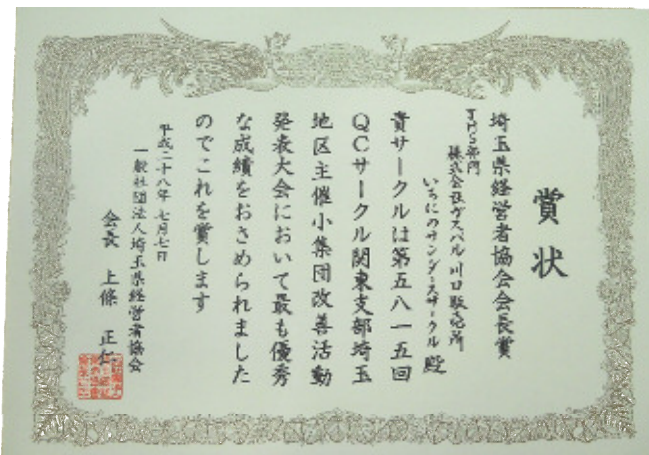 賞状
埼玉県経営者協会会長賞
JHS部門
株式会社ガスパル川口販売所
いちにのサンダースサークル 殿
貴サークルは第五八一五回
QCサークル関東支部埼玉
地区主催小集団改善活動
発表大会において最も優秀
な成績をおさめられました
のでこれを賞します
平成二十八年 七月七日
一般社団法人埼玉県経営者協会
会長 上條 正仁